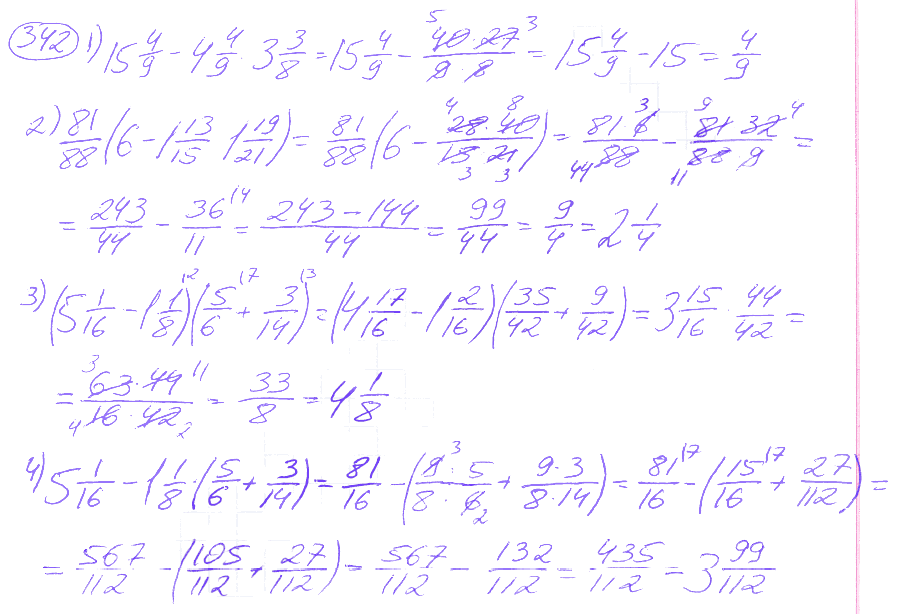 342 1) 15 4/9 − 4 4/9 · 3 3/8 = 15 4/9 − (40 · 27)/(9 · 8) = 15 4/9 − 15 = 4/9
2) 81/88 (6 − 1 13/15 1 19/21) = 81/88 (6 − (28 · 40)/(15 · 21)) = (81 6)/88 − (81 32)/(88 9) =
= 243/44 − 36/11 = (243 − 144)/44 = 99/44 = 9/4 = 2 1/4
3) (5 1/16 − 1 1/8)(5/6 + 3/14) = (4 17/16 − 1 2/16)(35/42 + 9/42) = 3 15/16 · 44/42 =
= (63 · 44)/(16 · 42) = 33/8 = 4 1/8
4) 5 1/16 − 1 1/8 · (5/6 + 3/14) = 81/16 − ((9 · 5)/(8 · 6) + (9 · 3)/(8 · 14)) = 81/16 − (15/16 + 27/112) =
= 567/112 − (105/112 + 27/112) = 567/112 − 132/112 = 435/112 = 3 99/112